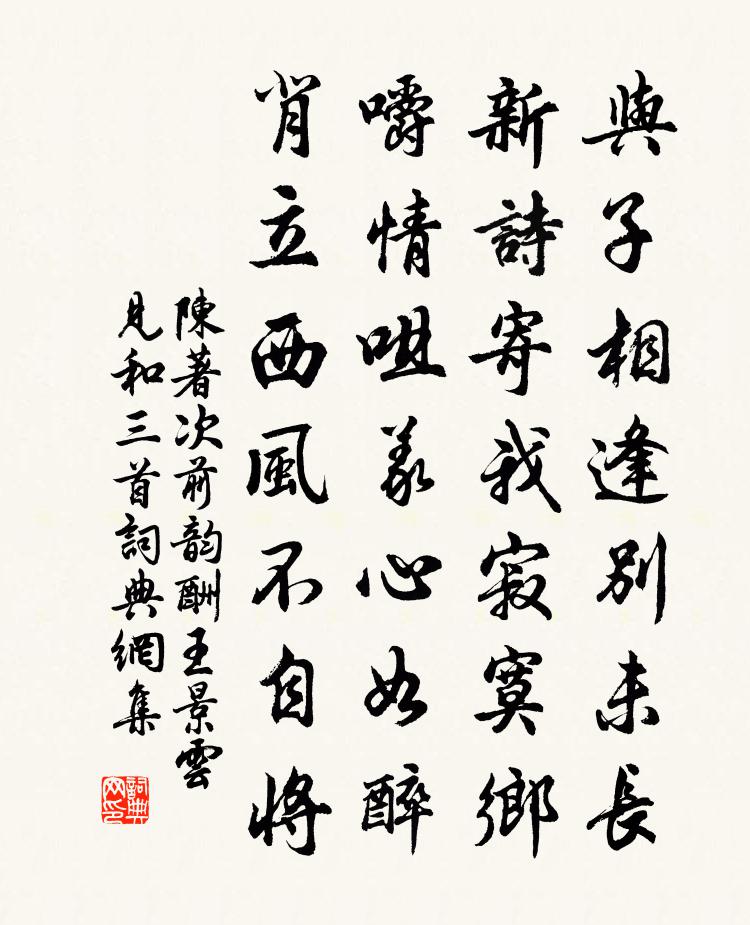 與子相逢別未長
新詩寄我寂寞鄉
嚼情咀義心如醉
背立西風不自將
陳著次前韵酬王景雲
見和三首詞典網集
詞典网印